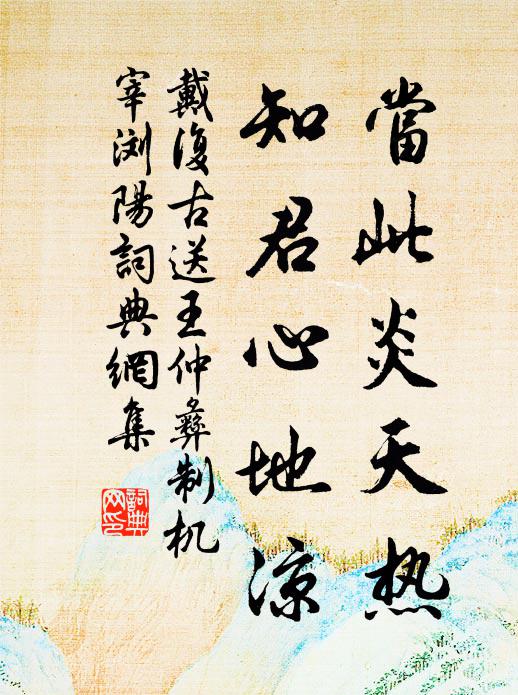 當此炎天热
知君心地凉
戴復古送王仲彝制机
宰浏陽詞典網集
詞典
网印